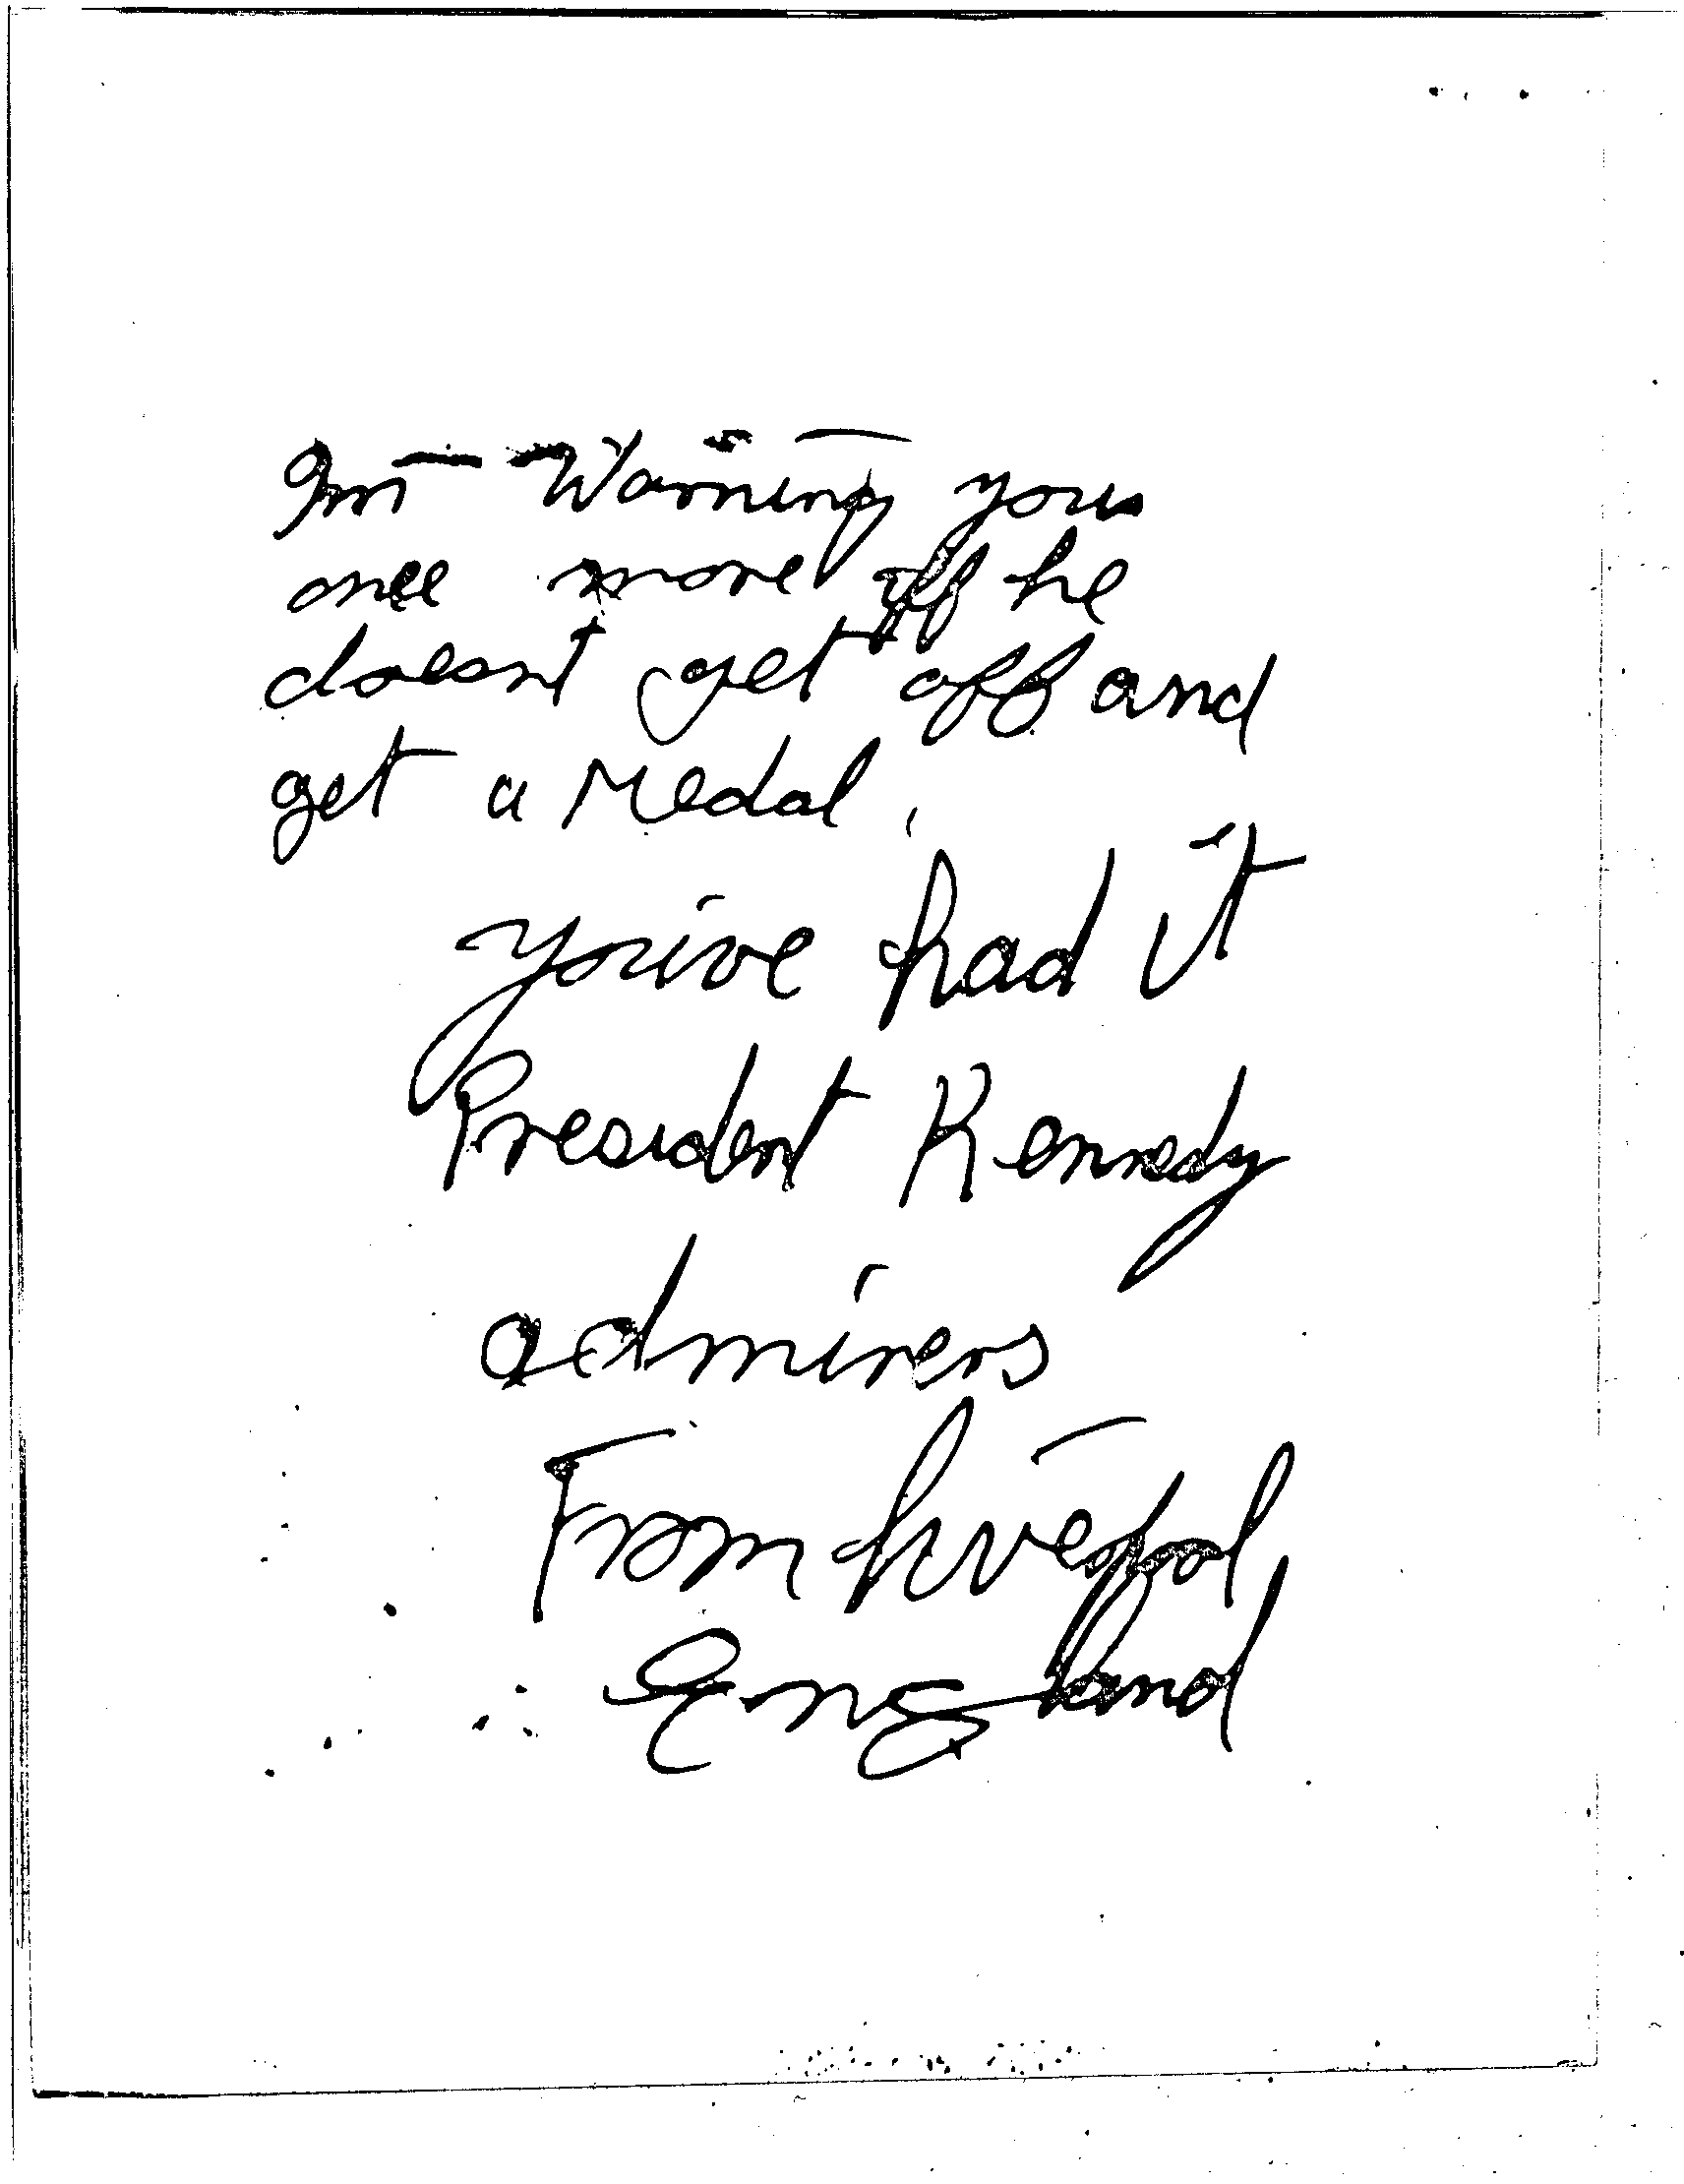 I'm Warning you
once more if he
doesnt get off and
get a Medal.
you've had it
President Kennedy
admirers
From Liverpol
England